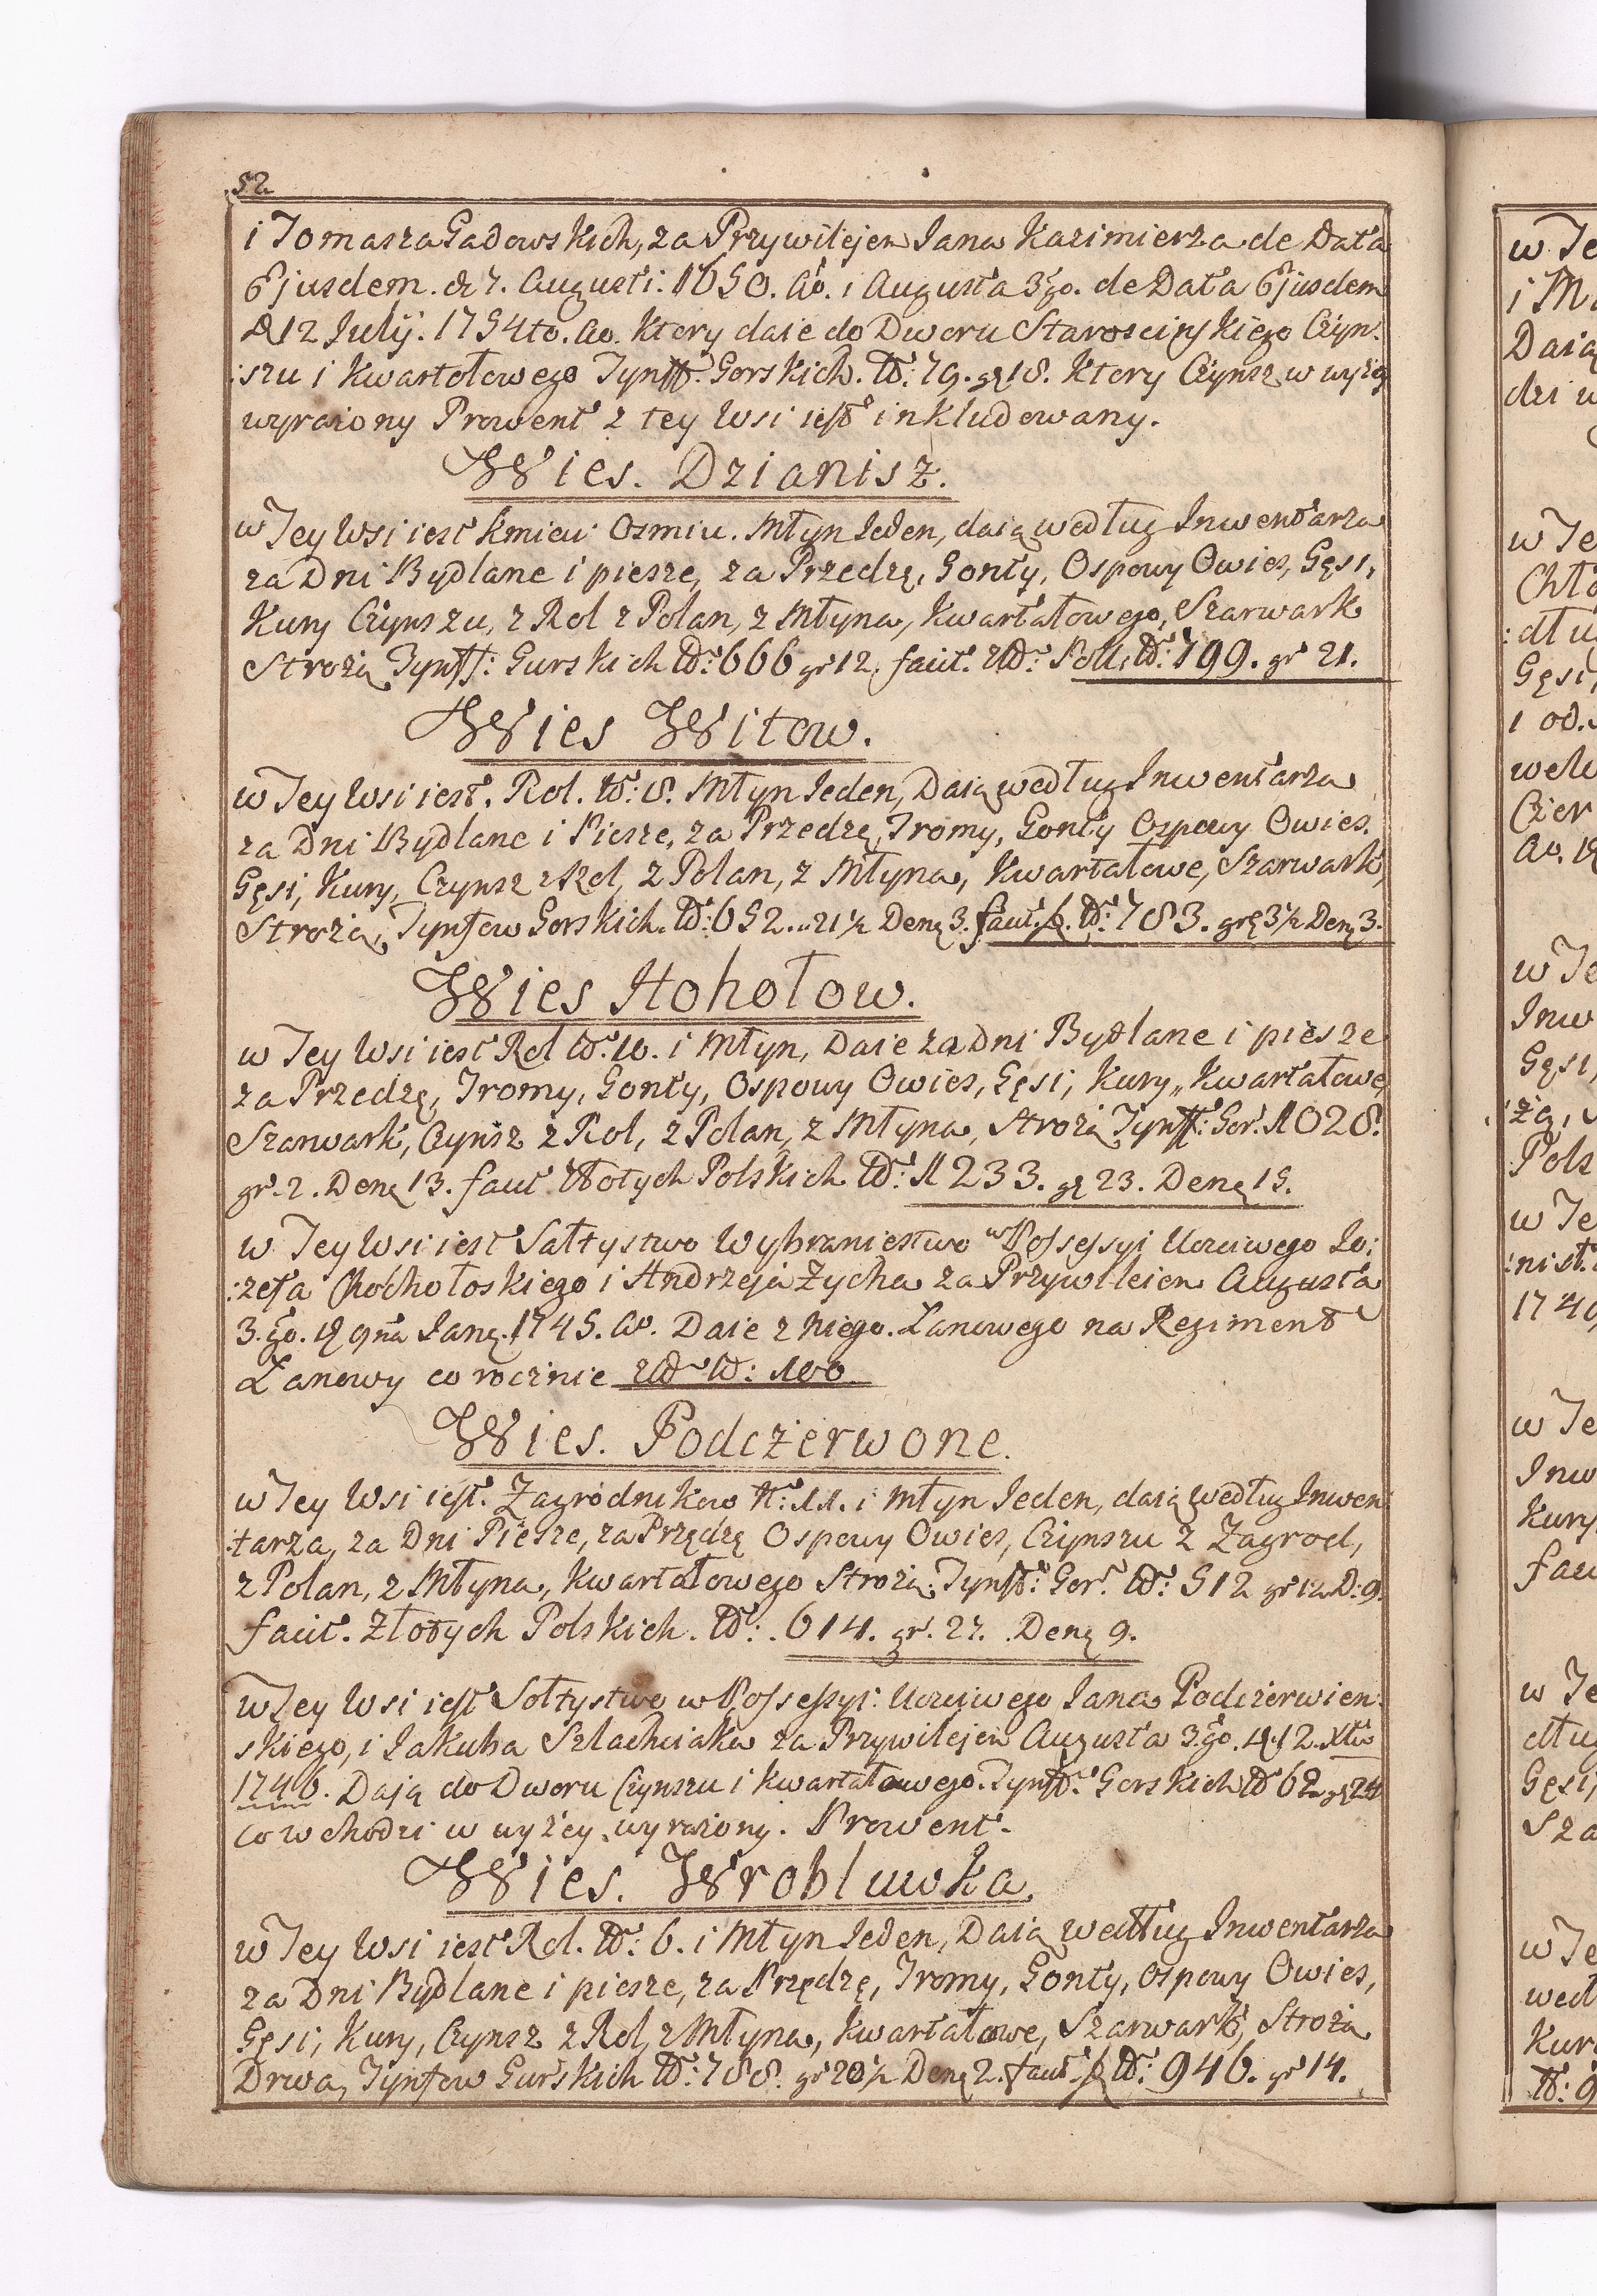 52
i Tomasza Gadowskich, za Przywilejem Jana Kazimierza de Data
Ejusdem. d 7. Augusti: 1650. Ao. i Augusta 3go. de Data Ejusdem
d 12 Julij. 1754to. Ao. Ktory daie do Dworu Starosciṅskiego Czyn:
:szu i Kwartałowego Tynff: Gorskich. No: 79. gr 18. Ktory Czynsz w wyżey
wyrażony Prowent z tey Wsi iest inkludowany.
Wies. Dzianisz.
w Tey Wsi iest Kmieci Osmiu. Młyn Jeden, daią według Inwentarza
za Dni Bydlane i piesze, za Przedzę, Gonty, Ospowy Owies, Gęsi,
Kury Czynszu, z Rol z Polan, z Młyna, Kwartałowego, Szarwark
Strożą Tynff: Gurskich No: 666 gr 12. facit. Zło: Pol: No: 799. gr 21.
Wies Witow.
w Tey Wsi iest. Rol. No: 8. Młyn Jeden, Daią według Inwentarza
za Dni Bydlane i Piesze, za Przedzę, Tromy, Gonty Ospowy Owies.
Gęsi, Kury, Czynsz z Rol, z Polan, z Młyna, Kwartałowe, Szarwark,
Stroża, Tynfow Gorskich. No: 652. 21½ Den 3. facit. No: 783. gr 3½ Den 3.
Wies Hohołow.
w Tey Wsi iest Rol No: 10. i Młyn, Daie za Dni Bydlane i piesze
za Przedzę, Tromy, Gonty, Ospowy Owies, Gęsi, Kury, Kwartałowe,
Szarwark, Czynsz z Rol, z Polan, z Młyna, Stroża Tynff: Gor: 1028.
gr. 2. Den 13. facit Złotych Polskich No: 1233. gr 23. Den 15.
w Tey Wsi iest Sałtystwo Wybraniestwo w Possessyi Uczciwego Jo:
:zefa Chochołoskiego i Andrzeja Zycha za Przywilejem Augusta
3.go. d 9na Jan. 1745. Ao. Daie z niego. Łanowego na Regiment
Łanowy co rocznie Zło No: 100
Wies. Podczerwone.
w Tey Wsi iest. Zagrodnikow No: 11. i Młyn Jeden, daią według Inwen
:tarza, za Dni Piesze, za Przędzę Ospowy Owies, Czynszu z Zagrod,
z Polan, z Młyna, Kwartałowego Stroża. Tynff: Gor: No: 512 gr 12 D: 9.
facit. Złotych Polskich. No: 614. gr. 27. Den 9.
w Tey Wsi iest Sołtystwo w Possessyi: Uczciwego Jana Podczerwien:
skiego, i Jakuba Szlachciaka za Przywilejem Augusta 3.go. d 12. Xbr
1746. Dają do Dworu Czynszu i Kwartałowego. Tynff: Gorskich No 62 gr 24
co w chodzi w wyżey wyrażony. Prowent.
Wies. Wrobluwka.
w Tey Wsi iest Rol. No: 6. i Młyn Jeden, Daią według Inwentarza
za Dni Bydlane i piesze, za Przędzę, Tromy, Gonty, Ospowy Owies,
Gęsi, Kury, Czynsz z Rol, z Młyna, Kwartałowe, Szarwark, Stroża
Drwa, Tynfow Gurskich No: 788. gr 20½ Den 2. facit. No: 946. gr 14.